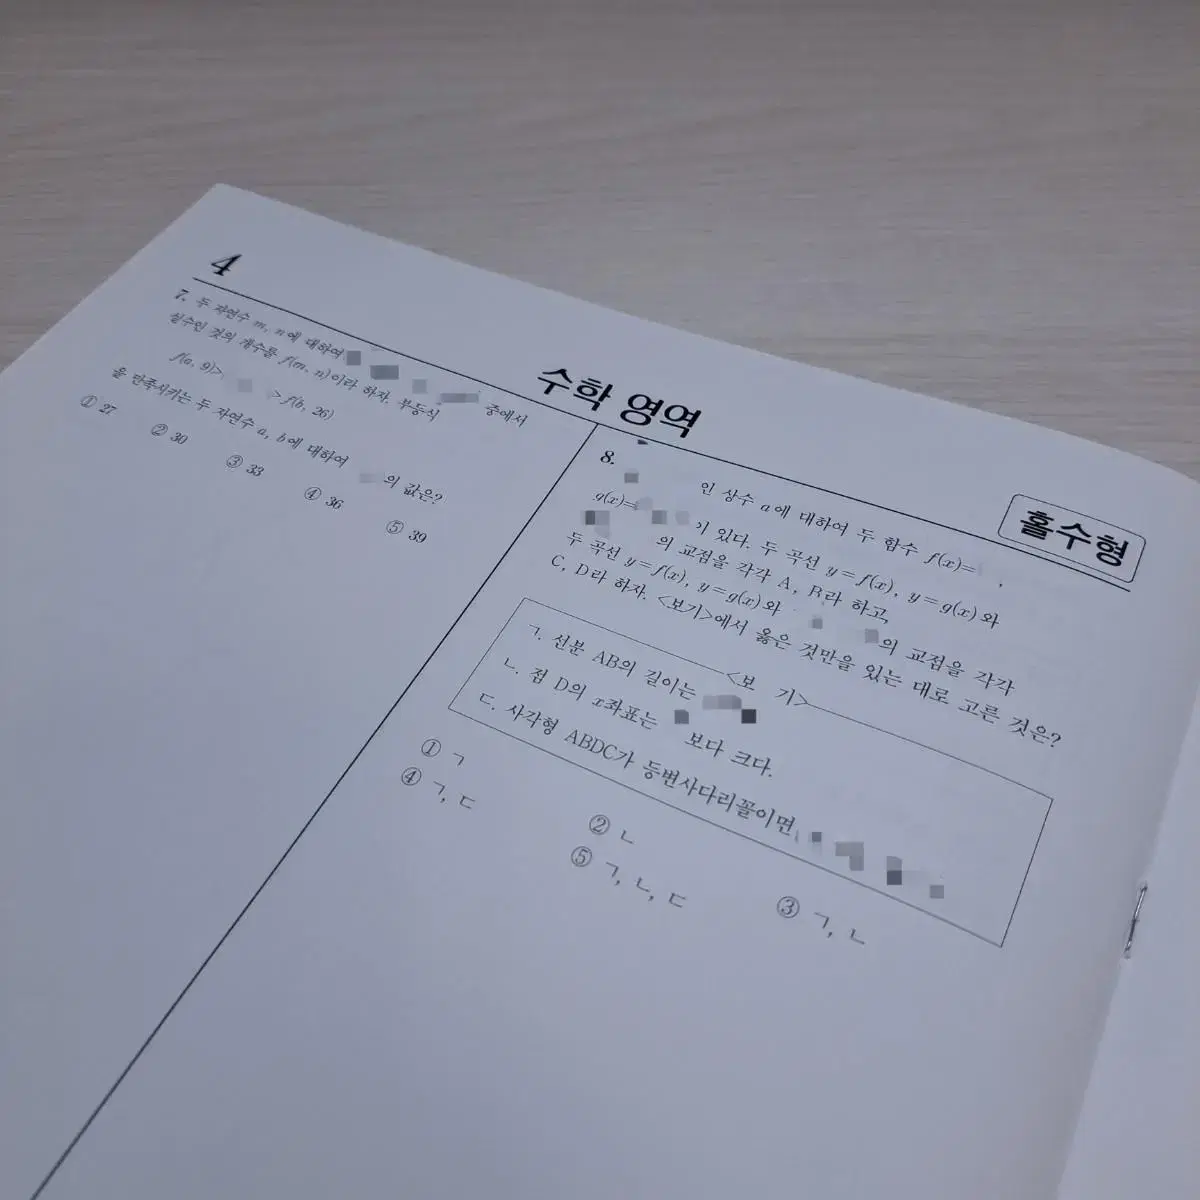 4
수학 영역
홀수형
7. 두 자연수 m, n에 대하여 중에서
실수인 것의 개수를 f(m, n)이라 하자. 부등식
f(a, 9)> >f(b, 26)
을 만족시키는 두 자연수 a, b에 대하여 의 값은?
① 27 ② 30 ③ 33 ④ 36 ⑤ 39
8. 인 상수 a에 대하여 두 함수 f(x)= ,
g(x)= 이 있다. 두 곡선 y=f(x), y=g(x)와
의 교점을 각각 A, B라 하고,
두 곡선 y=f(x), y=g(x)와 의 교점을 각각
C, D라 하자. <보기>에서 옳은 것만을 있는 대로 고른 것은?
<보 기>
ㄱ. 선분 AB의 길이는
ㄴ. 점 D의 x좌표는 보다 크다.
ㄷ. 사각형 ABDC가 등변사다리꼴이면
① ㄱ ② ㄴ ③ ㄱ, ㄴ
④ ㄱ, ㄷ ⑤ ㄱ, ㄴ, ㄷ